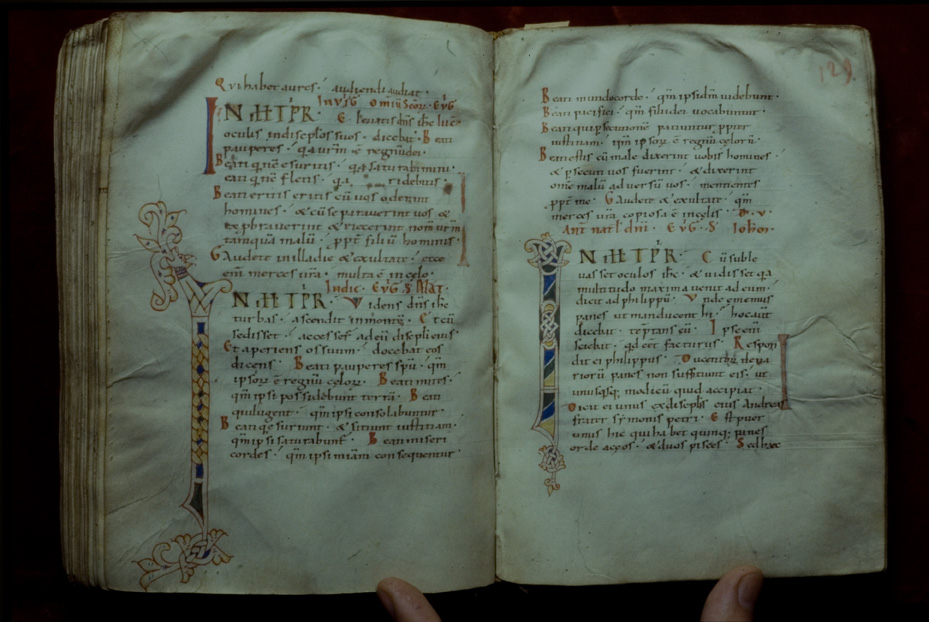 Qui habet aures· audiendi audiat·
In vig omniū scōr· Evḡ
IN ILL TPR· Elevatis dns ihc
oculis in discipłos suos· dicebat· Beati
pauperes· q̄a vrm ē regnū dei·
Beati qui nc̄ esuritis· q̄a saturabimini·
eati qui nc̄ fletis· q̄a ridebitis·
Beati eritis cū vos oderint
homines· & cū separaverint vos &
exprobraverint & eiecerint nom vrm
tamquā malū· ppt filiū hominis·
Gaudete in illa die & exultate· ecce
eni merces vra· multa ē in celo·
In dic· Evḡ s Mat·
IN ILL TPR· Videns dns ihc
turbas· ascendit in montē· Et cū
sedisset· accesser ad eū discipuli eius·
Et aperiens os suum· docebat eos
dicens· Beati pauperes spū· qm
ipsor ē regnū celor· Beati mites·
qm ipsi possidebunt terrā· Beati
qui lugent· qm ipsi consolabuntur·
Beati qui esuriunt· & sitiunt iustitiam·
qm ipsi saturabunt· Beati miseri
cordes· qm ipsi miām consequentur·
129.
Beati mundo corde· qm ipsi dm videbunt·
Beati pacifici· qm filii dei vocabuntur·
Beati qui psecutionē patiuntur ppter
iustitiam· qm ipsor ē regnū celorū·
Beati estis cū male dixerint vobis homines·
& psecuti vos fuerint· & dixerint
omne malū adversū vos· mentientes
ppt me· Gaudete & exultate· qm
merces vra copiosa ē in celis·
Ant nat dni· Evḡ· s Iohn·
IN ILL TPR· Cū suble
vasset oculos ihc· & vidisset q̄a
multitudo maxima venit ad eum·
dicit ad philippū· Unde ememus
panes ut manducent hi· hoc aut
dicebat· temptans eū· Ipse eni
sciebat· qd eēt facturus· Respon
dit ei philippus· Ducentor dena
riorū panes non sufficiunt eis· ut
unusqsq; modicū quid accipiat·
Dicit ei unus ex discipłis eius Andreas
frater symonis petri· Est puer
unus hic qui habet quinq; panes
ordeaceos· & duos pisces· Sed hec